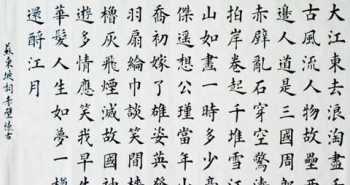 大江東去浪淘盡
古風流人物故壘西
邊人道是三國周郎
赤壁亂石穿空驚濤
拍岸卷起千堆雪江
山如畫一時多少
傑遙想公瑾當年小
喬初嫁了雄姿英發
羽扇綸巾談笑間
櫓灰飛煙滅故國神
遊多情應笑我早生
華髮人生如夢一樽
還酹江月
蘇東坡詞赤壁懷古